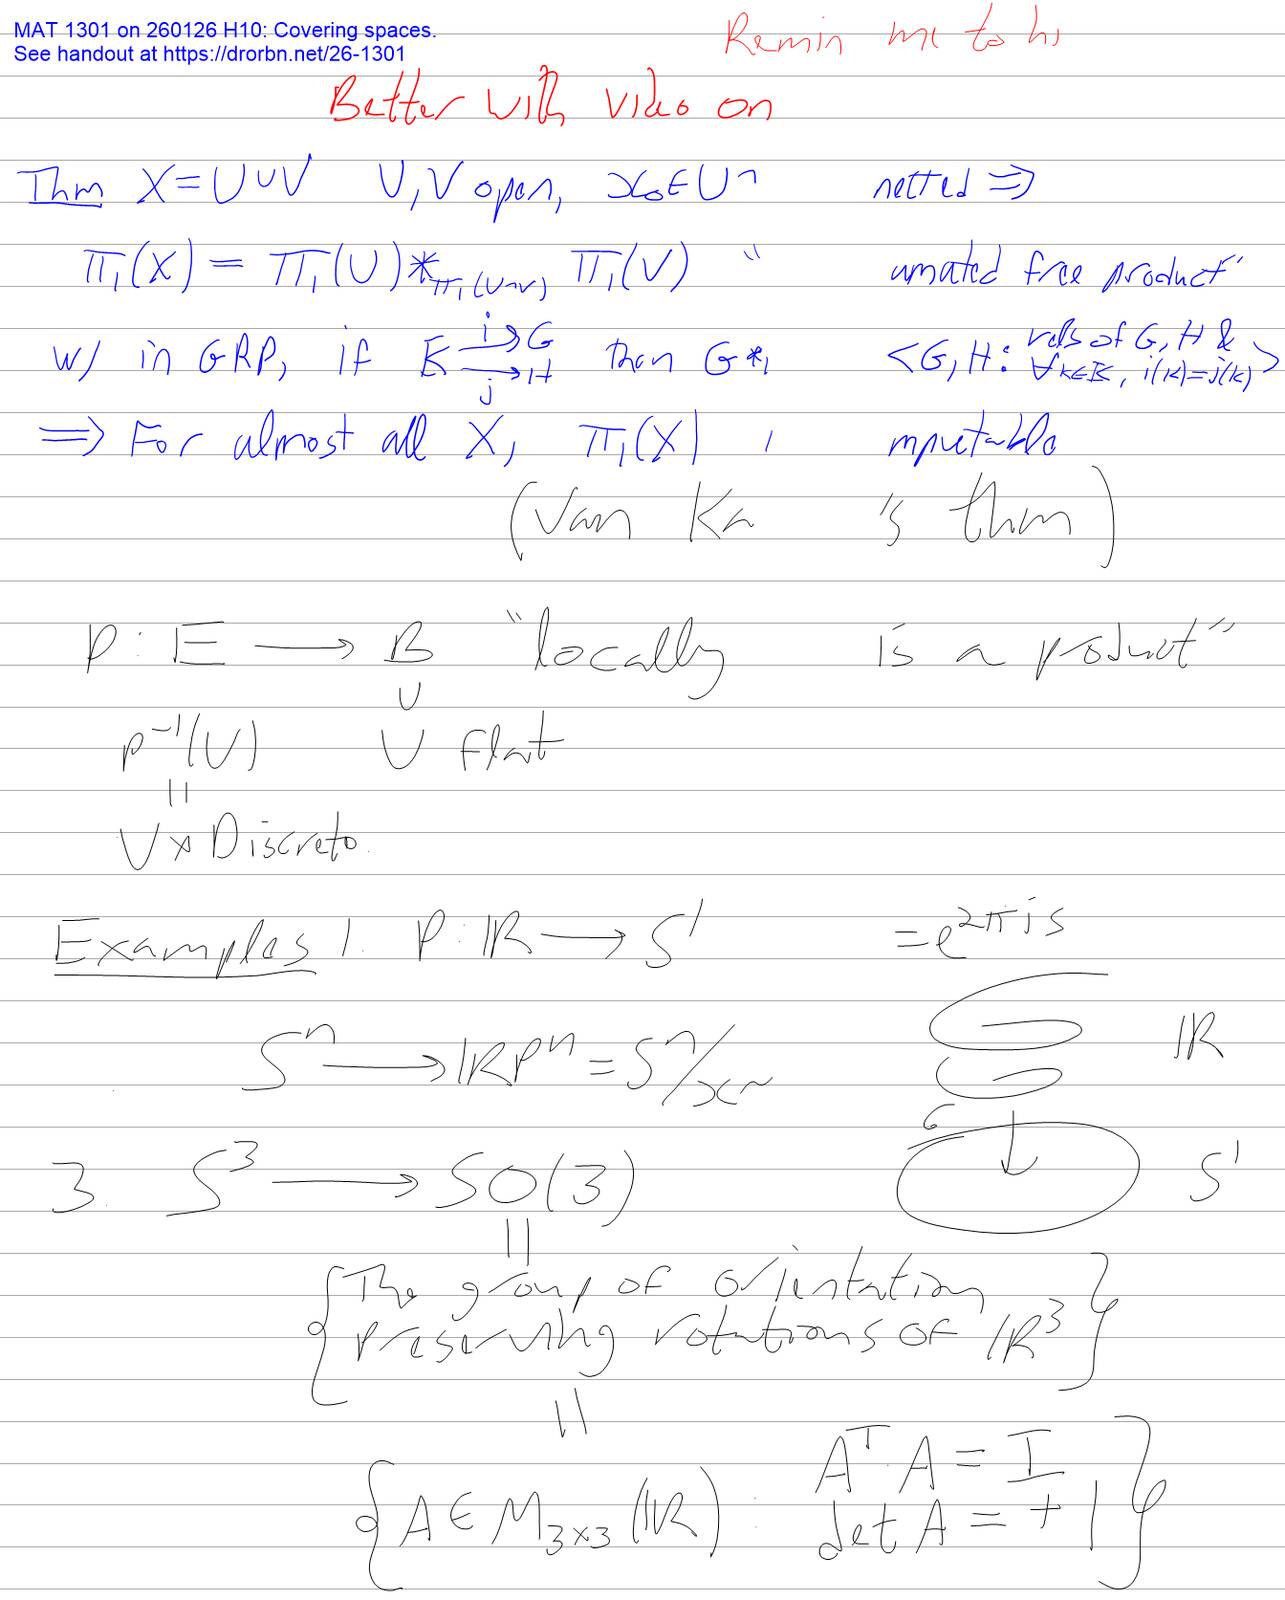 MAT 1301 on 260126 H10: Covering spaces.
See handout at https://drorbn.net/26-1301
Remin me to hi
Better with video on
Thm X=U∪V U,V open, x₀∈U∩ nected ⇒
π₁(X) = π₁(U) *_{π₁(U∩V)} π₁(V) " amated free product"
w/ in GRP, if K i→G j→H then G* <G,H: rels of G,H & ∀k∈K, i(k)=j(k)>
⇒ For almost all X, π₁(X) mputable
(Van Ka 's thm)
p: E → B "locally is a product"
∪
p⁻¹(U) U flat
||
U × Discrete.
Examples 1. P: ℝ → S¹ = e^{2πis}
Sⁿ → ℝPⁿ = Sⁿ/x~ ℝ
3. S³ → SO(3) S¹
||
{The group of orientation
preserving rotations of ℝ³}
||
{A ∈ M_{3×3}(ℝ) : AᵀA = I
det A = +1}